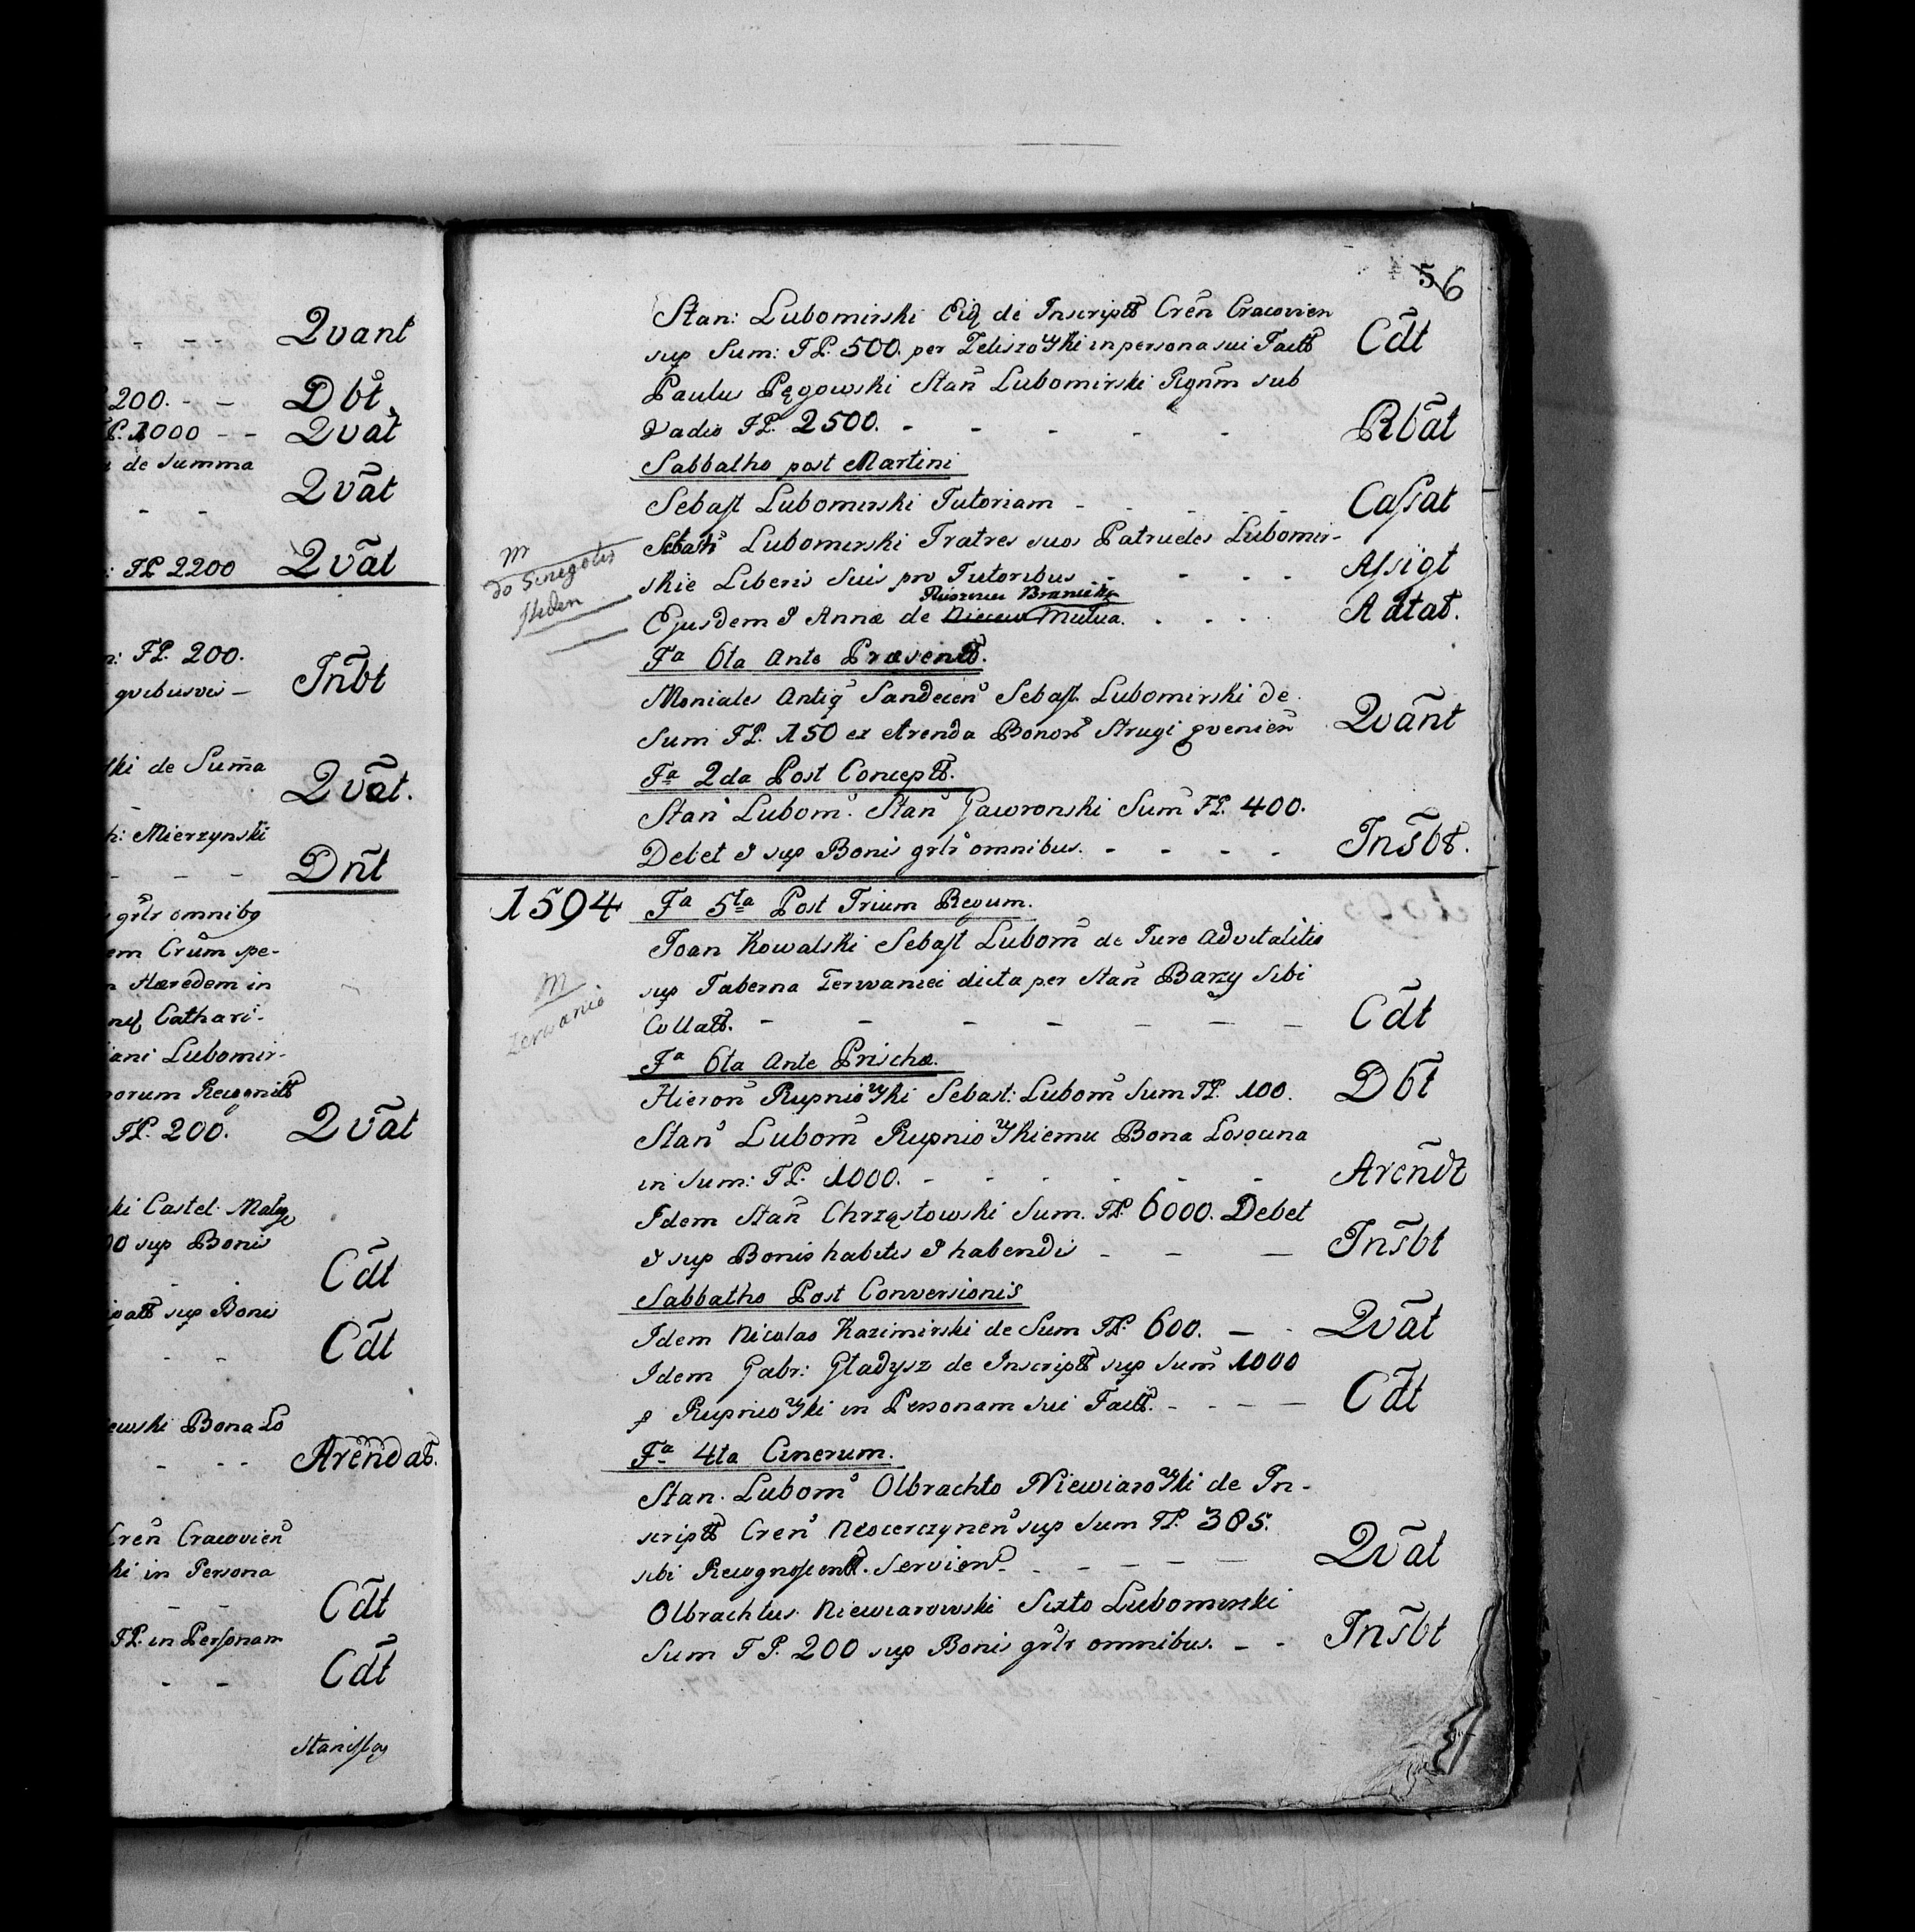 Qvant
200. - - Dbt
FP. 1000 - - Qvat
de summa
- - Qvat
: FP 2200 Qvat
n: FP. 200.
qvibusvis - Insbt
ski de Suma
- Qvat.
h: Mierzynski
- - - Dnt
grlr omnibg
em Crum spe-
n Hæredem in
Cathari-
iani Lubomir-
norum Recognitt
FP. 200. Qvat
ski Castel. Malog
00 sup Bonis
- - Cdt
sup Bonis
- - Cdt
ewski Bona Lo
- - - Arendat.
Cren Cracovien
ki in Persona
- - Cdt
FP. in Personam
- - Cdt
Stanislag
56
Stan: Lubomirski Eid de Inscriptt Cren Cracovien
sup Sum: FP. 500. per Zeliszowski in persona sui Factt Cdt
Paulus Pęgowski Stan Lubomirski Pignm sub
Vadio FP. 2500. - - - - - Rbat
Sabbatho post Martini
Sebast Lubomirski Tutoriam - - - - - Cassat
Sebasti Lubomirski Fratres suos Patrueles Lubomir-
skie Liberis Suis pro Tutoribus - - - - Assigt
m
do
Ruszcza Branicka
Ejusdem & Annæ de Mutua. . . . . Adtat.
Fa 6ta Ante Præsentt.
Moniales Antiq Sandecen Sebast. Lubomirski de
Sum FP. 150 ex Arenda Bonor Strugi pvenien Qvant
Fa 2da Post Conceptt.
Stan Lubom. Stan Gawronski Sum FP. 400.
Debet & sup Bonis grlr omnibus. - - - - Insbt.
1594 Fa 5ta Post Trium Regum.
Joan Kowalski Sebast Lubom de Jure Advitalitio
sup Taberna Zerwaniei dicta per Stan Barzy sibi
m
Zerwanie
Collatt. - - - - - - - Cdt
Fa 6ta Ante Priscæ.
Hieron Rupniowski Sebast: Lubom Sum FP. 100. Dbt
Stan Lubom Rupniowskiemu Bona Lososina
in Sum: FP. 1000. - - - - - - Arendt
Idem Stan Chrząstowski Sum. FP. 6000. Debet
& sup Bonis habitis & habendis - - - Insbt
Sabbatho Post Conversionis
Idem Nicolao Kazimirski de Sum FP. 600. - - Qvat
Idem Gabr: Gładysz de Inscriptt sup Sum 1000
p Rupniowski in Personam sui Factt. - - - - Cdt
Fa 4ta Cinerum.
Stan. Lubom Olbrachto Niewiarowski de In-
scriptt Cren Neocerczynen sup Sum FP. 385.
sibi Recognoscentt. Servien - - - - - Qvat
Olbrachtus Niewiarowski Sixto Lubomirski
Sum FP. 200 sup Bonis grlr omnibus. - - Insbt